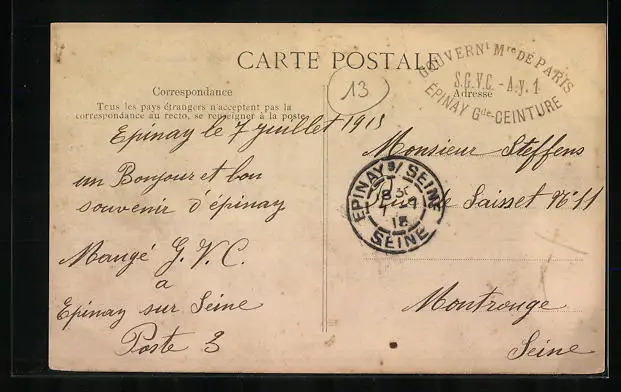 CARTE POSTALE
13
GOUVERNT Mre DE PARIS
S.G.V.C. - A.y.1
ÉPINAY Gde-CEINTURE
Correspondance
Tous les pays étrangers n'acceptent pas la
correspondance au recto, se renseigner à la poste.
Adresse
Epinay le 7 juillet 1915
un Bonjour et bon
souvenir d'épinay
Mangé G.V.C.
a
Epinay sur Seine
Poste 3
Monsieur Steffens
de Saisset No 11
Montrouge
Seine
EPINAY S/ SEINE
SEINE